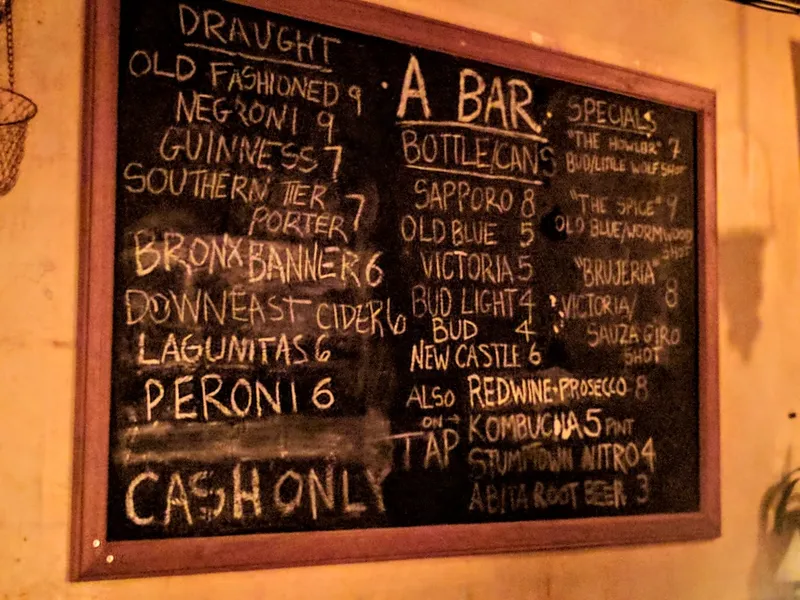 DRAUGHT
OLD FASHIONED 9
NEGRONI 9
GUINNESS 7
SOUTHERN TIER
PORTER 7
BRONX BANNER 6
DOWNEAST CIDER 6
LAGUNITAS 6
PERONI 6
CASH ONLY
· A BAR ·
BOTTLE/CANS
SAPPORO 8
OLD BLUE 5
VICTORIA 5
BUD LIGHT 4
BUD 4
NEW CASTLE 6
ALSO REDWINE·PROSECCO 8
ON → TAP
KOMBUCHA 5 PINT
STUMPTOWN NITRO 4
ABITA ROOT BEER 3
SPECIALS
"THE HOWLER" 7
BUD/LITTLE WOLF SHOT
"THE SPICE" 9
OLD BLUE/WORMWOOD
SHOT
"BRUJERIA" 8
VICTORIA/
SAUZA GIRO
SHOT